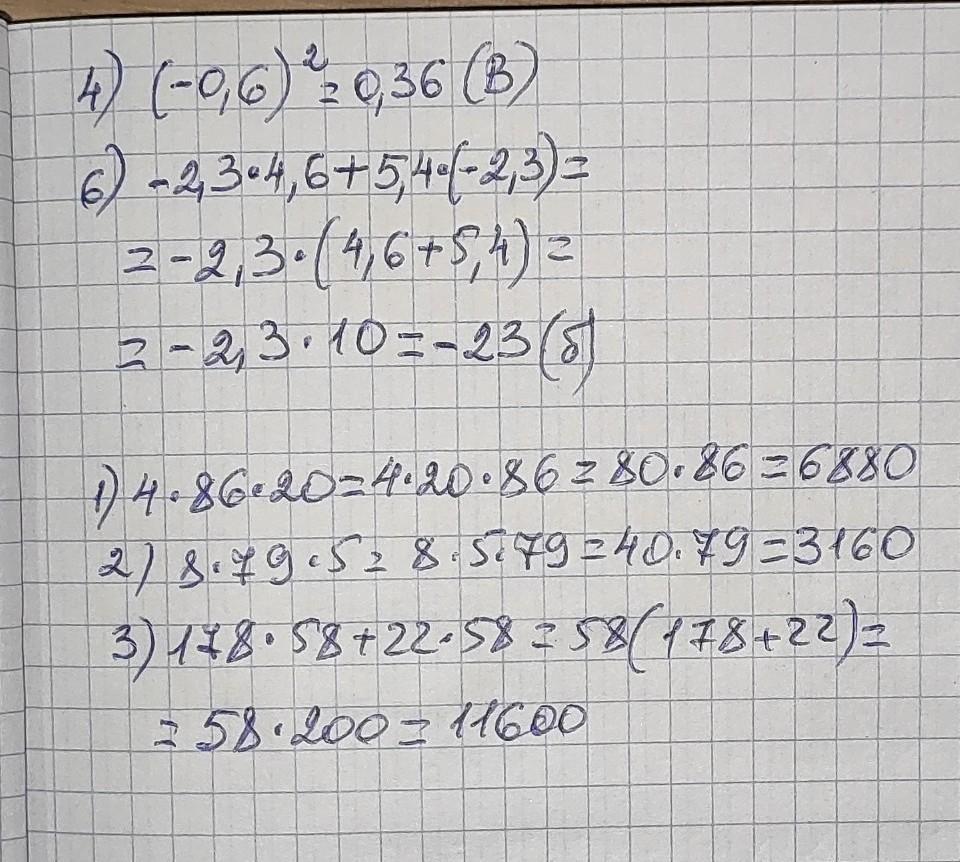 4) (-0,6)² = 0,36 (В)
6) -2,3·4,6+5,4·(-2,3)=
= -2,3·(4,6+5,4)=
= -2,3·10=-23(б)
1) 4·86·20=4·20·86=80·86=6880
2) 8·79·5= 8·5·79=40·79=3160
3) 178·58+22·58=58(178+22)=
= 58·200=11600